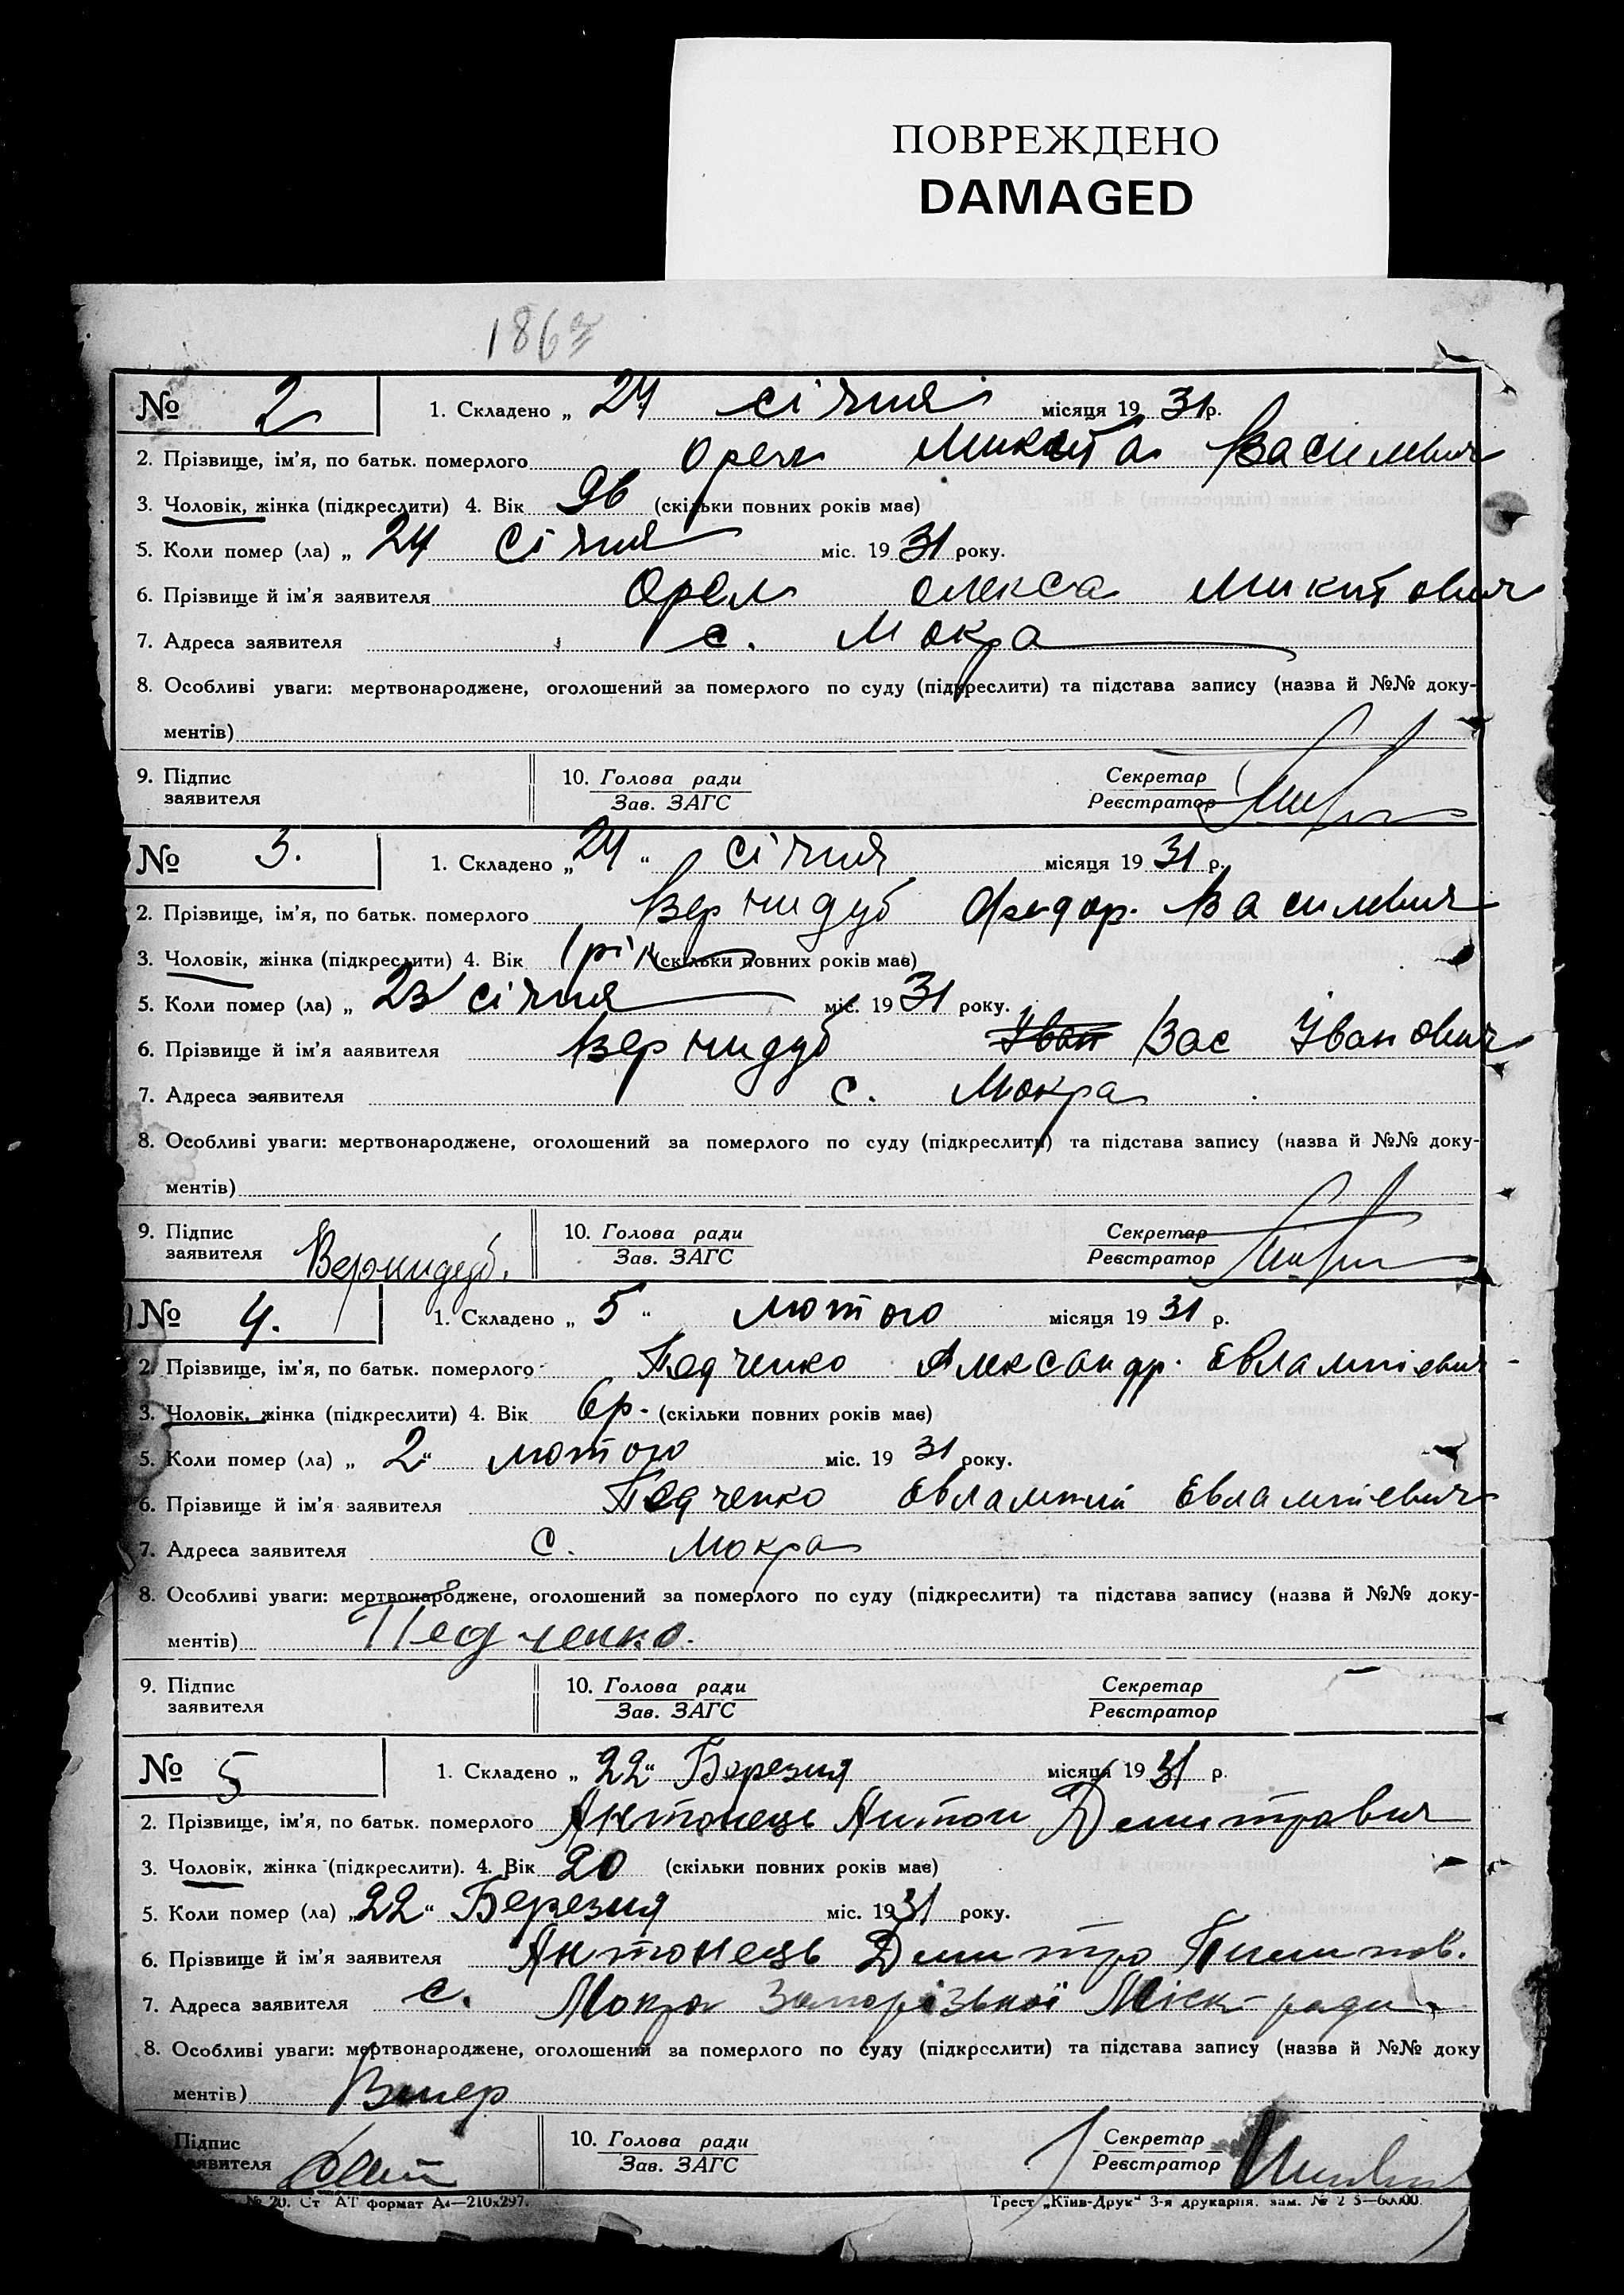 ПОВРЕЖДЕНО
DAMAGED
186
№ 2
1. Складено „ 24 січня місяця 19 31 р.
2. Прізвище, ім'я, по батьк. померлого Орел Микита Василевич
3. Чоловік, жінка (підкреслити) 4. Вік 96 (скільки повних років має)
5. Коли помер (ла) „ 24 Січня міс. 19 31 року.
6. Прізвище й ім'я заявителя Орел Олекса Микитович
7. Адреса заявителя с. Мокра
8. Особливі уваги: мертвонароджене, оголошений за померлого по суду (підкреслити) та підстава запису (назва й №№ доку-
ментів)
9. Підпис заявителя
10. Голова ради
Зав. ЗАГС
Секретар
Реєстратор
№ 3.
1. Складено „ 24 “ січня місяця 19 31 р.
2. Прізвище, ім'я, по батьк. померлого Вернидуб Федор. Василевич
3. Чоловік, жінка (підкреслити) 4. Вік 1 рік (скільки повних років має)
5. Коли помер (ла) „ 23 січня міс. 19 31 року.
6. Прізвище й ім'я ааявителя Вернидуб Іван Вас Іванович
7. Адреса заявителя с. Мокра
8. Особливі уваги: мертвонароджене, оголошений за померлого по суду (підкреслити) та підстава запису (назва й №№ доку-
ментів)
9. Підпис заявителя Вернидуб.
10. Голова ради
Зав. ЗАГС
Секретар
Реєстратор
№ 4.
1. Складено „ 5 “ лютого місяця 19 31 р.
2. Прізвище, ім'я, по батьк. померлого Педченко Александр. Евлампієвич
3. Чоловік, жінка (підкреслити) 4. Вік 6р. (скільки повних років має)
5. Коли помер (ла) „ 2 “ лютого міс. 19 31 року.
6. Прізвище й ім'я заявителя Педченко Евлампий Евлампієвич
7. Адреса заявителя С. Мокра
8. Особливі уваги: мертвонароджене, оголошений за померлого по суду (підкреслити) та підстава запису (назва й №№ доку-
ментів) Педченко.
9. Підпис заявителя
10. Голова ради
Зав. ЗАГС
Секретар
Реєстратор
№ 5
1. Складено „ 22 “ Березня місяця 19 31 р.
2. Прізвище, ім'я, по батьк. померлого Антонець Антон Демитрович
3. Чоловік, жінка (підкреслити). 4. Вік 20 (скільки повних років має)
5. Коли помер (ла) „ 22 “ Березня міс. 19 31 року.
6. Прізвище й ім'я заявителя Антонець Демитро Пилипов.
7. Адреса заявителя с. Мокра Запорізької Міськ ради
8. Особливі уваги: мертвонароджене, оголошений за померлого по суду (підкреслити) та підстава запису (назва й №№ доку
ментів) Вмер
Підпис
10. Голова ради
Зав. ЗАГС
Секретар
Реєстратор
№ 20. Ст АТ формат А4—210х297.
Трест „Київ-Друк“ 3-я друкарня.